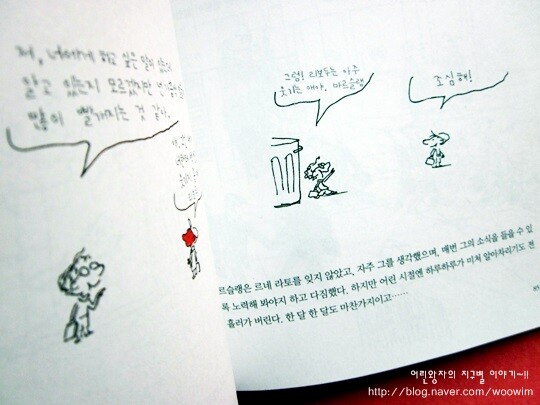 너에게 하고 싶은 말이 있는데
알고 있는지 모르겠지만
빨개지는 것 같아.
그럼! 리보두는 아주
웃기는 애야, 마르슬랭
조심해!
르슬랭은 르네 라토를 잊지 않았고, 자주 그를 생각했으며, 매번 그의 소식을 들을 수 있
록 노력해 봐야지 하고 다짐했다. 하지만 어린 시절엔 하루하루가 미처 알아차리기도 전
흘러가 버린다. 한 달 한 달도 마찬가지이고……
어린왕자의 지구별 이야기~!!
http://blog.naver.com/woowim